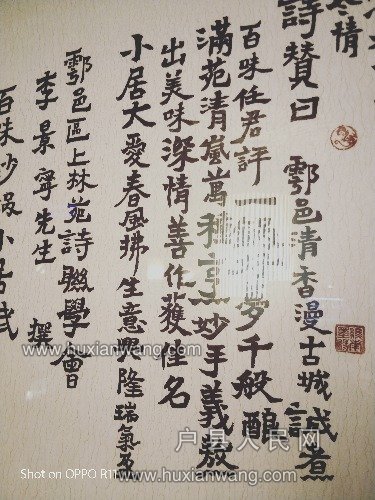 詩贊曰 鄠邑清香漫古城誠煮
百味任君評 千般釀
滿苑清嵐萬種烹妙手義熬
出美味深情善作獲佳名
小居大愛春風拂生意興隆瑞氣
鄠邑區上林苑詩聯學會
李景寧先生 撰
百味 小居
www.huxianwang.com
www.huxianwang.com
户县人民网
www.huxianwang.com
Shot on OPPO R11